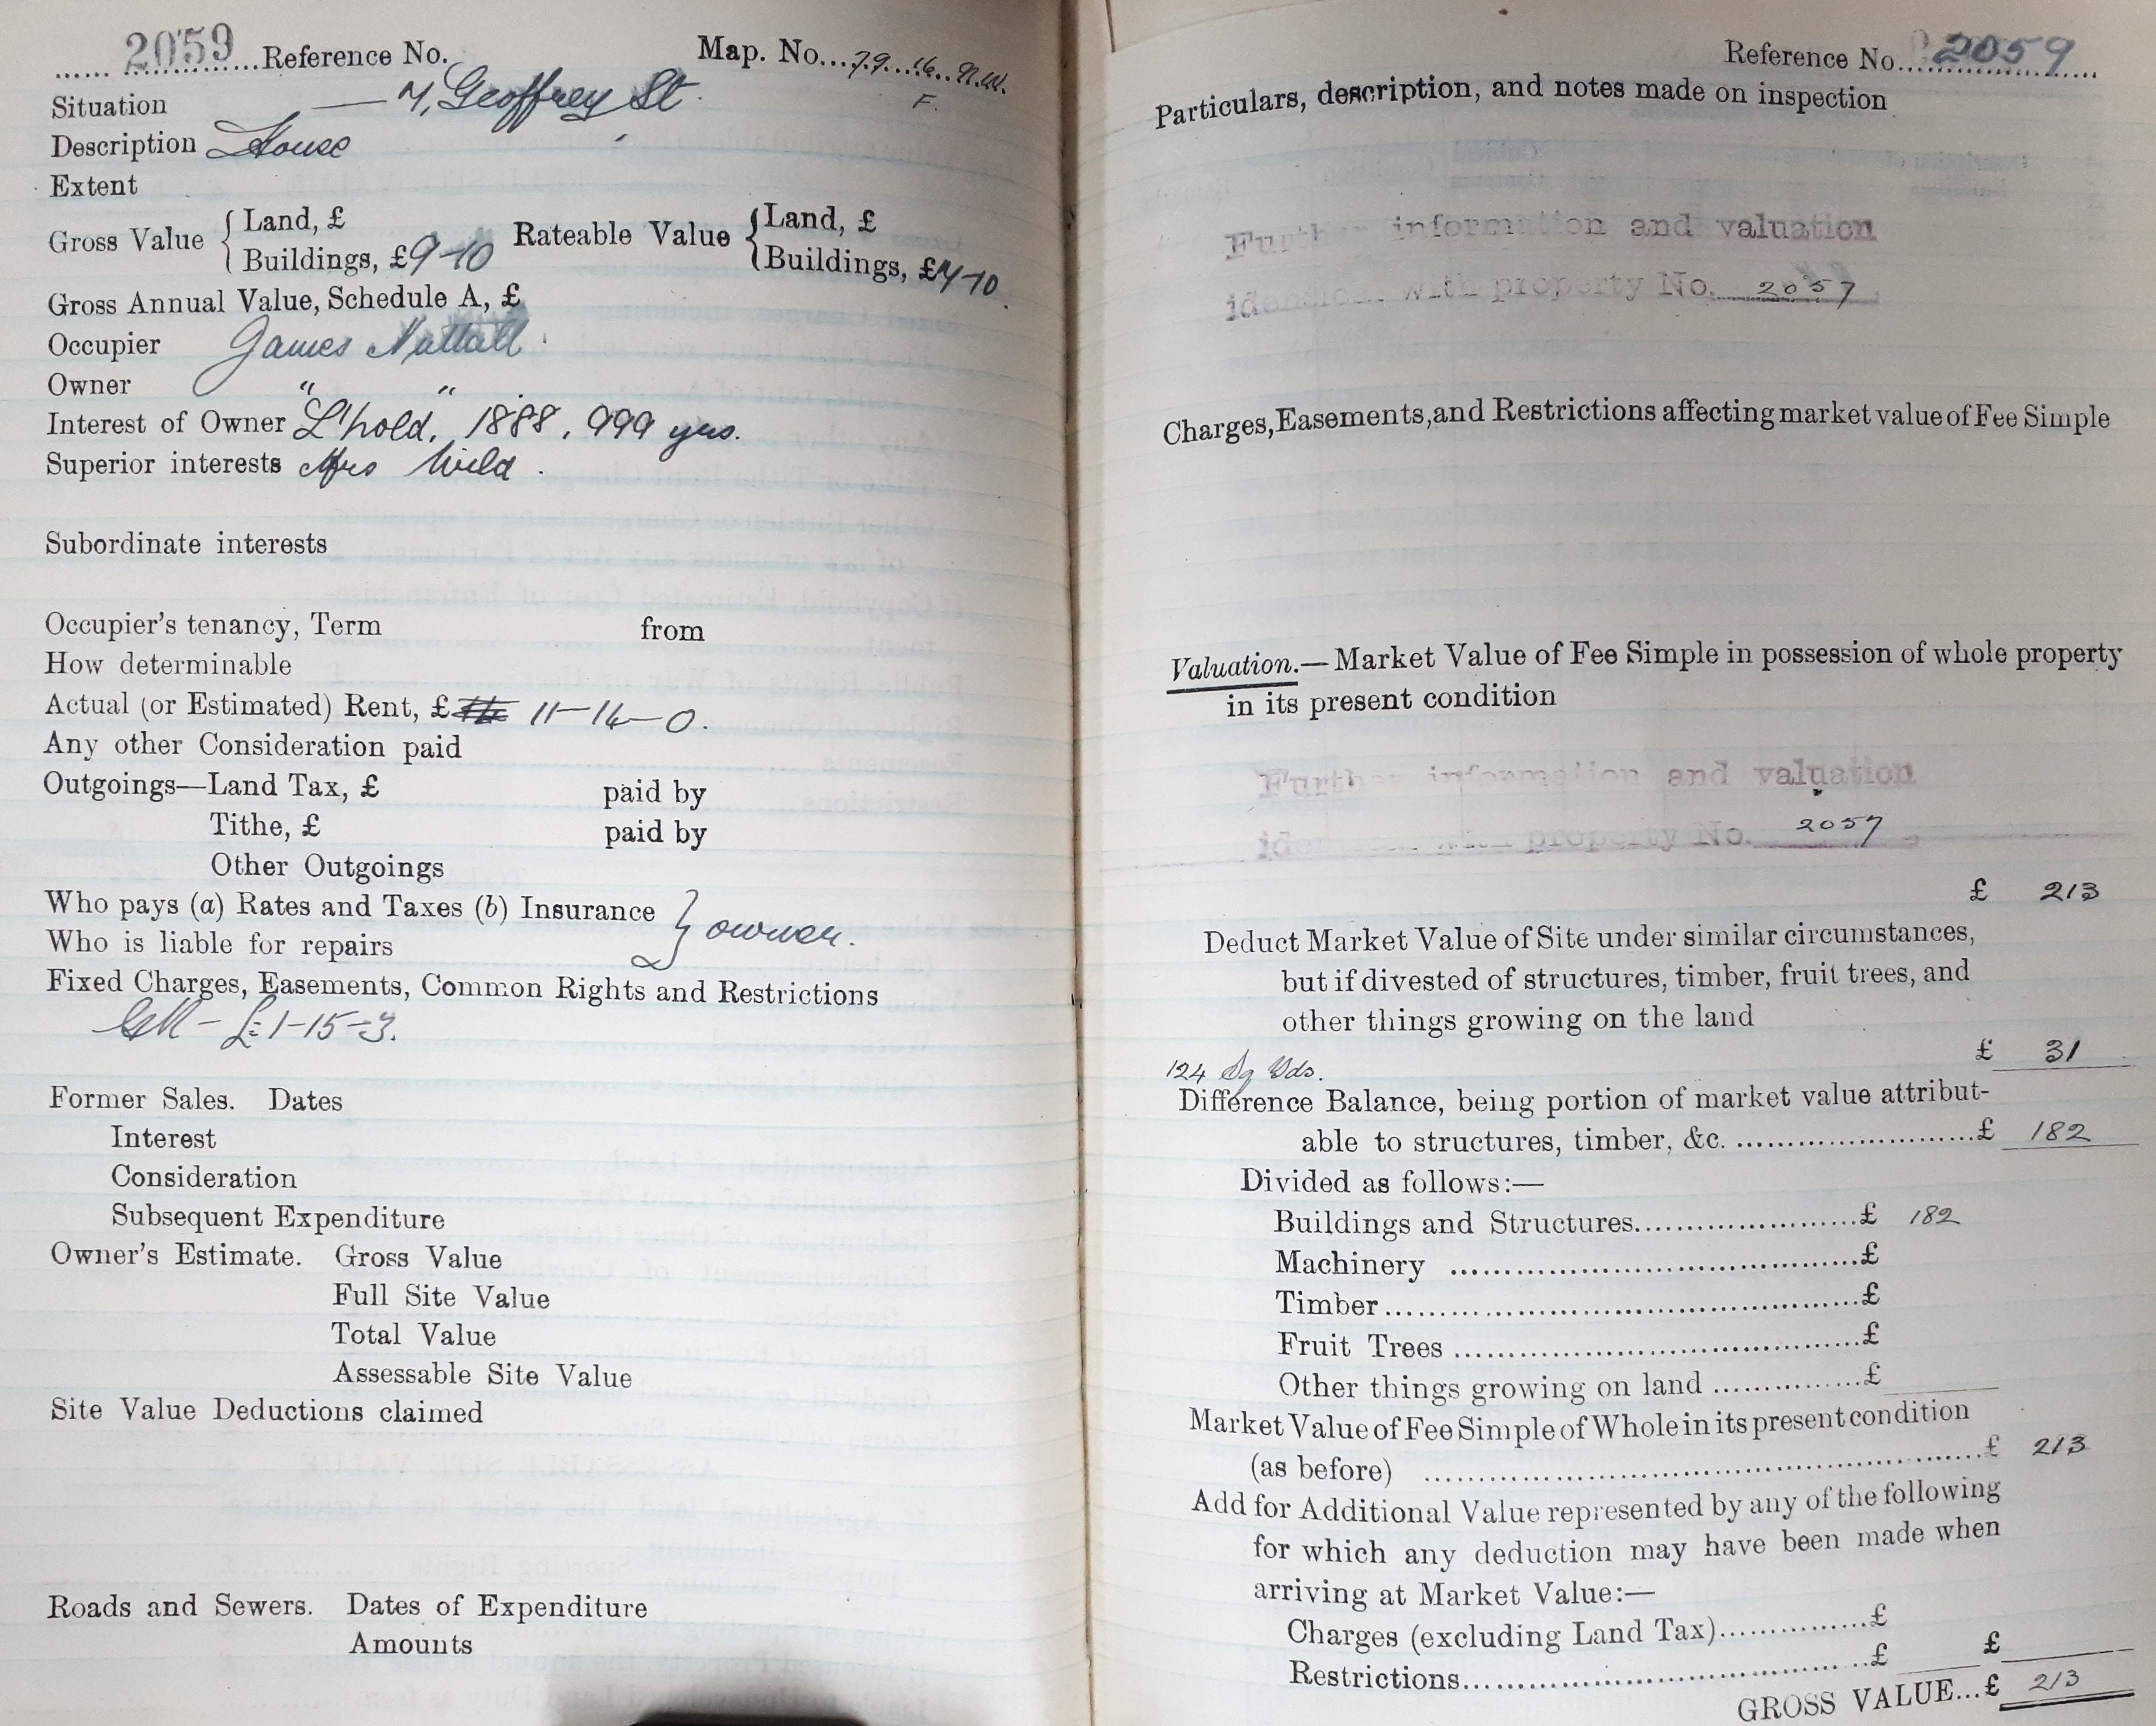 2059 Reference No. Map. No. 79. 16. N.W.
F.
Situation — 7, Geoffrey St.
Description House
Extent
Gross Value { Land, £ Rateable Value { Land, £
Buildings, £ 9-10 Buildings, £ 7-10
Gross Annual Value, Schedule A, £
Occupier James Nuttall
Owner " "
Interest of Owner L'hold, 1888, 999 yrs.
Superior interests Mrs Wild.
Subordinate interests
Occupier's tenancy, Term from
How determinable
Actual (or Estimated) Rent, £ 11-14-0.
Any other Consideration paid
Outgoings—Land Tax, £ paid by
Tithe, £ paid by
Other Outgoings
Who pays (a) Rates and Taxes (b) Insurance } owner.
Who is liable for repairs
Fixed Charges, Easements, Common Rights and Restrictions
GR - £1-15-3.
Former Sales. Dates
Interest
Consideration
Subsequent Expenditure
Owner's Estimate. Gross Value
Full Site Value
Total Value
Assessable Site Value
Site Value Deductions claimed
Roads and Sewers. Dates of Expenditure
Amounts
Reference No. 2059
Particulars, description, and notes made on inspection
Further information and valuation
identical with property No. 2057
Charges, Easements, and Restrictions affecting market value of Fee Simple
Valuation.—Market Value of Fee Simple in possession of whole property
in its present condition
Further information and valuation
identical with property No. 2057
£ 213
Deduct Market Value of Site under similar circumstances,
but if divested of structures, timber, fruit trees, and
other things growing on the land
£ 31
124 Sq Yds.
Difference Balance, being portion of market value attribut-
able to structures, timber, &c. £ 182
Divided as follows:—
Buildings and Structures £ 182
Machinery £
Timber £
Fruit Trees £
Other things growing on land £
Market Value of Fee Simple of Whole in its present condition
(as before) £ 213
Add for Additional Value represented by any of the following
for which any deduction may have been made when
arriving at Market Value:—
Charges (excluding Land Tax) £
Restrictions £ £
GROSS VALUE... £ 213